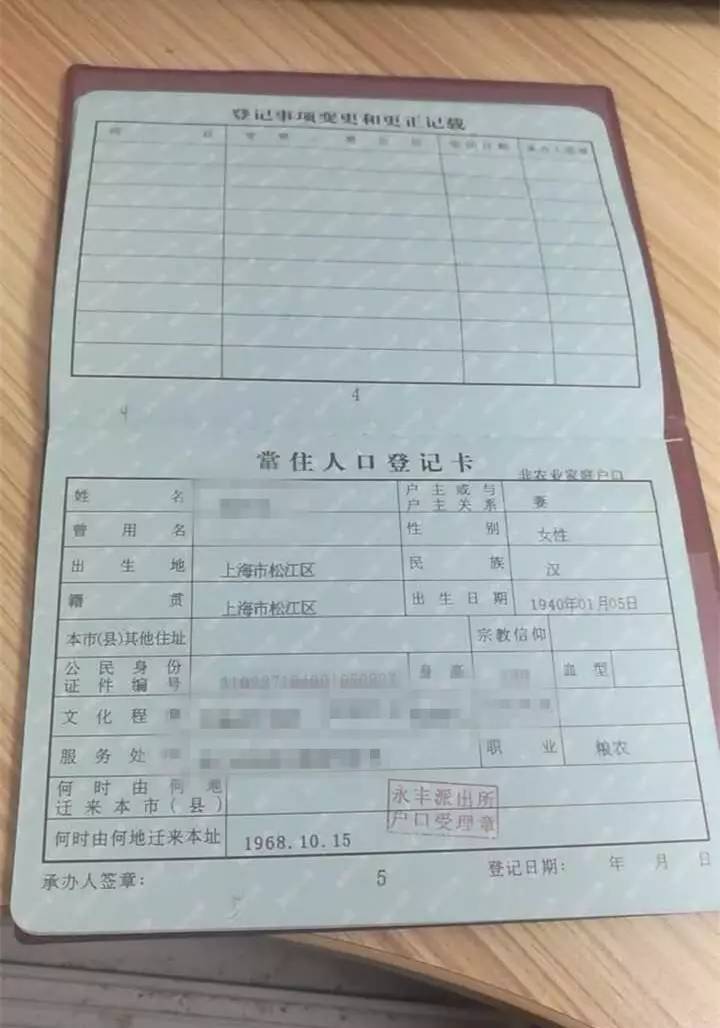 登记事项变更和更正记载
4
4
常住人口登记卡
非农业家庭户口
姓名
户主或与户主关系 妻
曾用名
性别 女性
出生地 上海市松江区
民族 汉
籍贯 上海市松江区
出生日期 1940年01月05日
本市(县)其他住址
宗教信仰
公民身份证件编号
身高
血型
文化程
服务处
职业 粮农
何时由何地迁来本市(县)
何时由何地迁来本址 1968.10.15
永丰派出所
户口受理章
承办人签章:
5
登记日期: 年 月 日